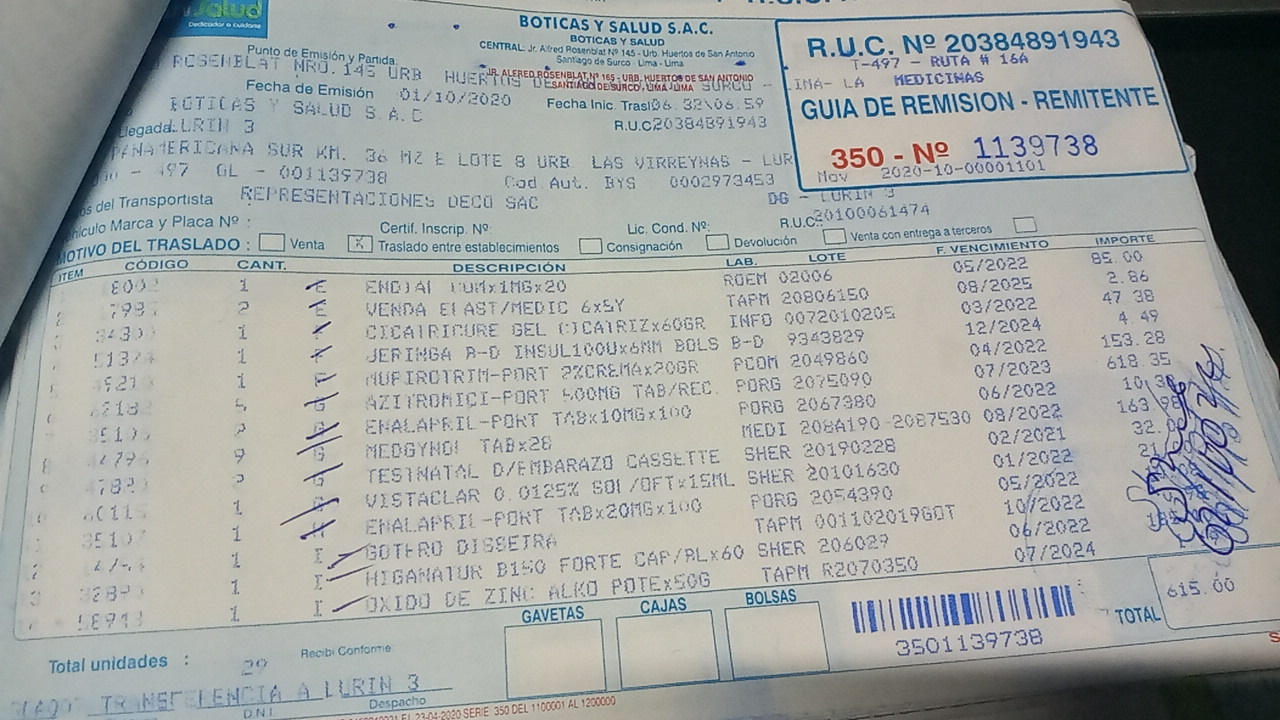 Salud
Dedicados a cuidarte
BOTICAS Y SALUD S.A.C.
BOTICAS Y SALUD
CENTRAL: Jr. Alfred Rosenblat Nº 145 - Urb. Huertos de San Antonio
Santiago de Surco - Lima - Lima
R.U.C. Nº 20384891943
T-497 - RUTA # 16A
MEDICINAS
GUIA DE REMISION - REMITENTE
350 - Nº 1139738
Nov 2020-10-00001101
Punto de Emisión y Partida:
ROSENBLAT NRO. 145 URB HUERTOS DE SURCO - LIMA- LA
JR. ALFRED ROSENBLAT Nº 165 - URB. HUERTOS DE SAN ANTONIO
SANTIAGO DE SURCO - LIMA - LIMA
Fecha de Emisión 01/10/2020 Fecha Inic. Trasl 06.32\06.59
BOTICAS Y SALUD S.A.C R.U.C 20384891943
Llegada: LURIN 3
PANAMERICANA SUR KM. 36 MZ E LOTE 8 URB. LAS VIRREYNAS - LUR
- 497 GL - 001139738 Cod.Aut. BYS 0002973453
DG - LURIN 3
Transportista REPRESENTACIONES DECO SAC R.U.C: 20100061474
Marca y Placa Nº : Certif. Inscrip. Nº Lic. Cond. Nº:
MOTIVO DEL TRASLADO : Venta X Traslado entre establecimientos Consignación Devolución Venta con entrega a terceros
ITEM CÓDIGO CANT. DESCRIPCIÓN LAB. LOTE F. VENCIMIENTO IMPORTE
1 E ROEM 02006 05/2022 85.00
2 E VENDA ELAST/MEDIC 6x5Y TAPM 20806150 08/2025 2.86
1 CICATRICURE GEL CICATRIZx60GR INFO 0072010205 03/2022 47.38
1 JERINGA B-D INSUL100Ux6MM BOLS B-D 9343829 12/2024 4.49
1 MUPIROTRIM-PORT 2%CREMAx20GR PCOM 2049860 04/2022 153.28
5 AZITROMICI-PORT 500MG TAB/REC. PORG 2075090 07/2023 618.35
2 ENALAPRIL-PORT TABx10MGx100 PORG 2067380 06/2022
9 MEDGYNOL TABx28 MEDI 208A190-2087530 08/2022
TESTNATAL D/EMBARAZO CASSETTE SHER 20190228 02/2021
1 VISTACLAR 0.0125% SOL/OFTx15ML SHER 20101630 01/2022
1 ENALAPRIL-PORT TABx20MGx100 PORG 2054390 05/2022
1 I GOTERO DISSETRA TAPM 001102019GOT 10/2022
1 I HIGANATUR B150 FORTE CAP/BLx60 SHER 206029 06/2022
1 I OXIDO DE ZINC ALKO POTEx50G TAPM R2070350 07/2024
GAVETAS CAJAS BOLSAS
3501139738
TOTAL 615.00
Total unidades : 29 Recibi Conforme:
TRANSFERENCIA A LURIN 3
D.N.I. Despacho
23-04-2020 SERIE 350 DEL 1100001 AL 1200000